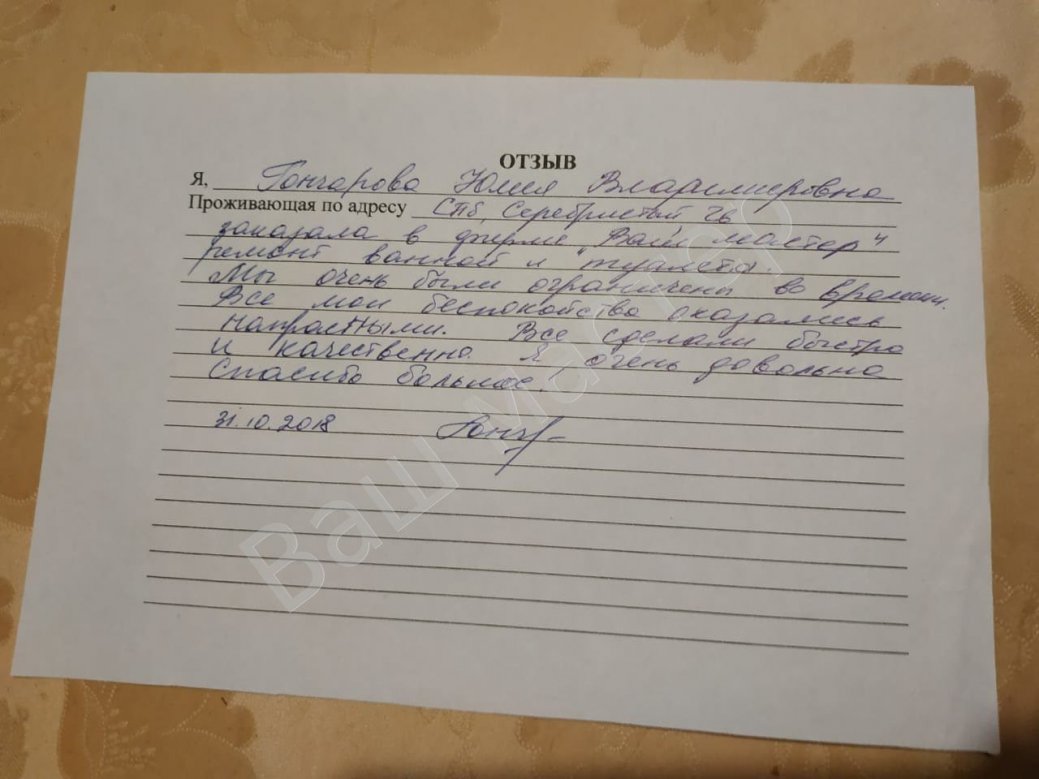 ОТЗЫВ
Я, Гончарова Юлия Владимировна
Проживающая по адресу СПб, Серебристый 26
заказала в фирме "Ваш мастер"
ремонт ванной и туалета.
Мы очень были ограничены во времени.
Все мои беспокойства оказались
напрасными. Все сделали быстро
и качественно. Я очень довольна
Спасибо большое.
31.10.2018
Ваш Мастер